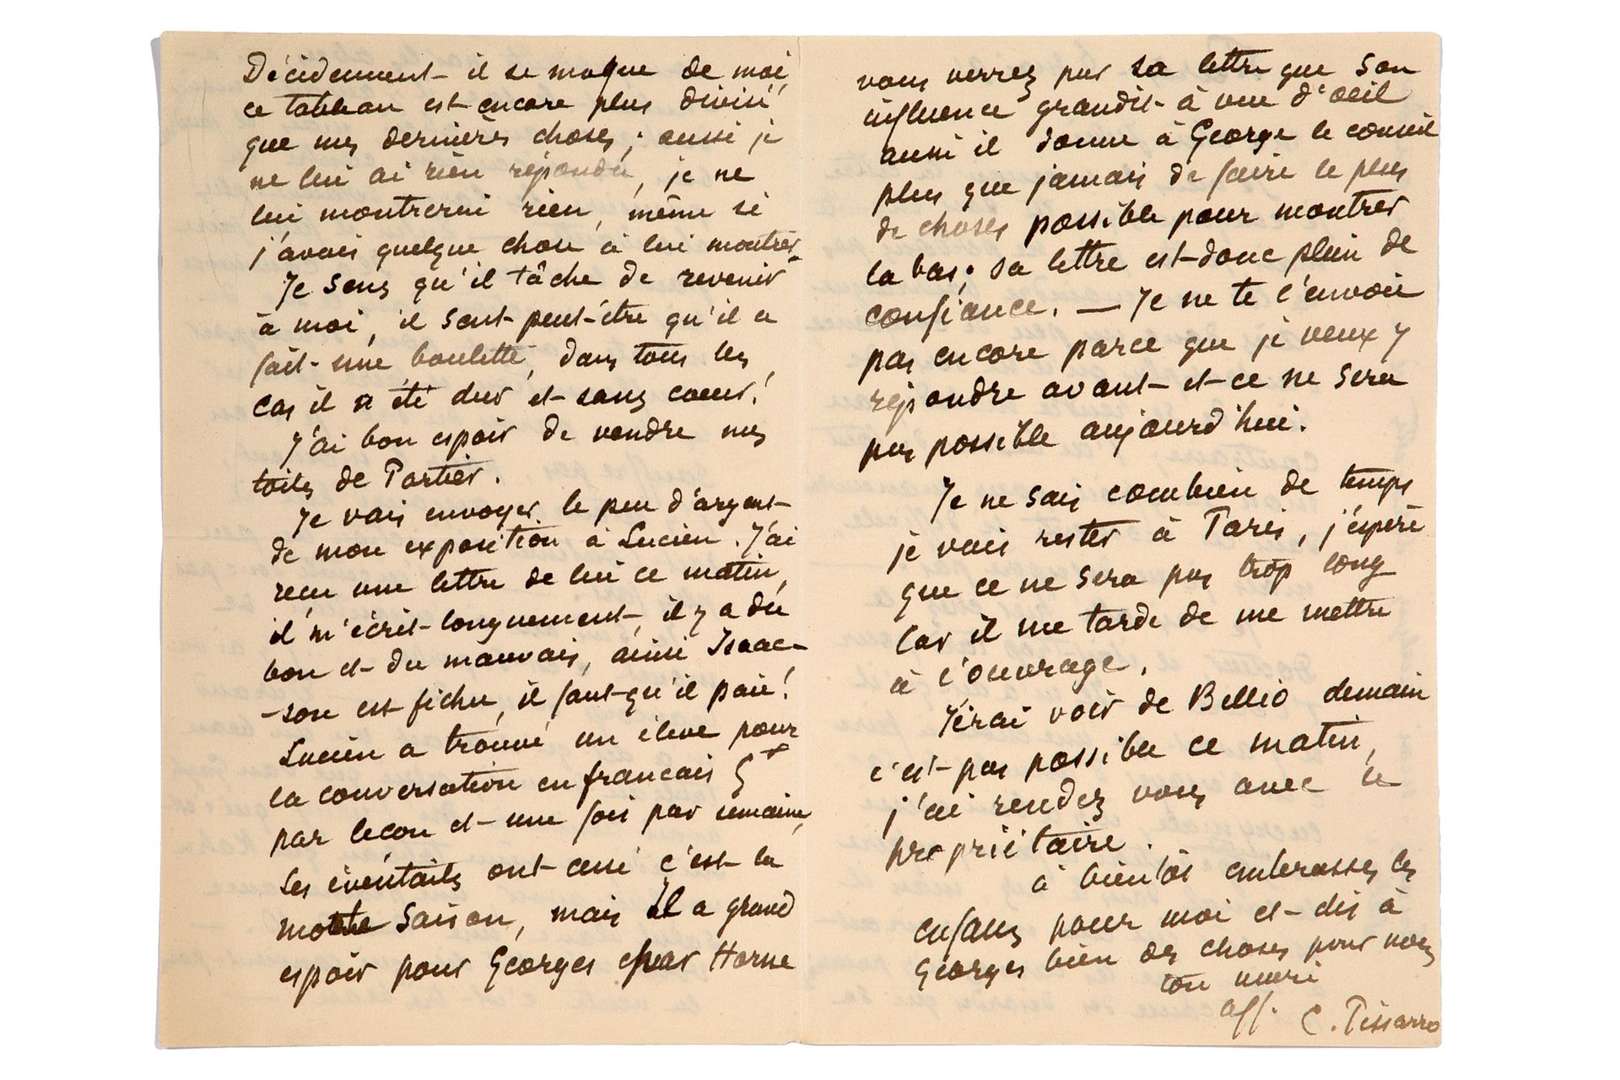 Décidemment il se moque de moi,
ce tableau est encore plus divisé
que mes dernières choses; aussi je
ne lui ai rien répondu, je ne
lui montrerai rien, même si
j'avais quelque chose à lui montrer.
Je sens qu'il tâche de revenir
à moi, il sent peut-être qu'il a
fait une boulette, dans tous les
cas il a été dur et sans coeur!
J'ai bon espoir de vendre mes
toiles de Portier.
Je vais envoyer le peu d'argent
de mon exposition à Lucien. J'ai
reçu une lettre de lui ce matin,
il m'écrit longuement, il y a du
bon et du mauvais, ainsi Isaac-
-son est fichu, il faut qu'il paie!
Lucien a trouvé un élève pour
la conversation en français 5f
par leçon et une fois par semaine,
les éventails ont cessé c'est la
morte saison, mais il a grand
espoir pour Georges chez Horne
vous verrez par sa lettre que son
influence grandit à vue d'oeil
aussi il donne à George le conseil
plus que jamais de faire le plus
de choses possible pour montrer
la bas; sa lettre est donc plein de
confiance. — Je ne te l'envoie
pas encore parce que je veux y
répondre avant et ce ne sera
pas possible aujourd'hui.
Je ne sais combien de temps
je vais rester à Paris, j'espère
que ce ne sera pas trop long
car il me tarde de me mettre
à l'ouvrage.
J'irai voir de Bellio demain
c'est pas possible ce matin,
j'ai rendez vous avec le
propriétaire.
à bientôt embrasse les
enfans pour moi et dis à
Georges bien des choses pour nous
ton mari
aff.
C. Pissarro